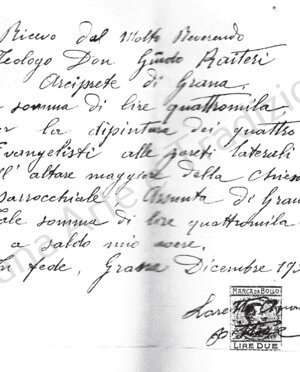 Ricevo dal Molto Reverendo
Teologo Don Guido Raiteri
Arciprete di Grana
somma di lire quattromila
per la dipintura dei quattro
Evangelisti alle pareti laterali
dell'altare maggiore della chiesa
parrocchiale Assunta di Grana
Tale somma di lire quattromila
a saldo mio avere.
In fede, Grana Dicembre 19
MARCA DA BOLLO
LIRE DUE